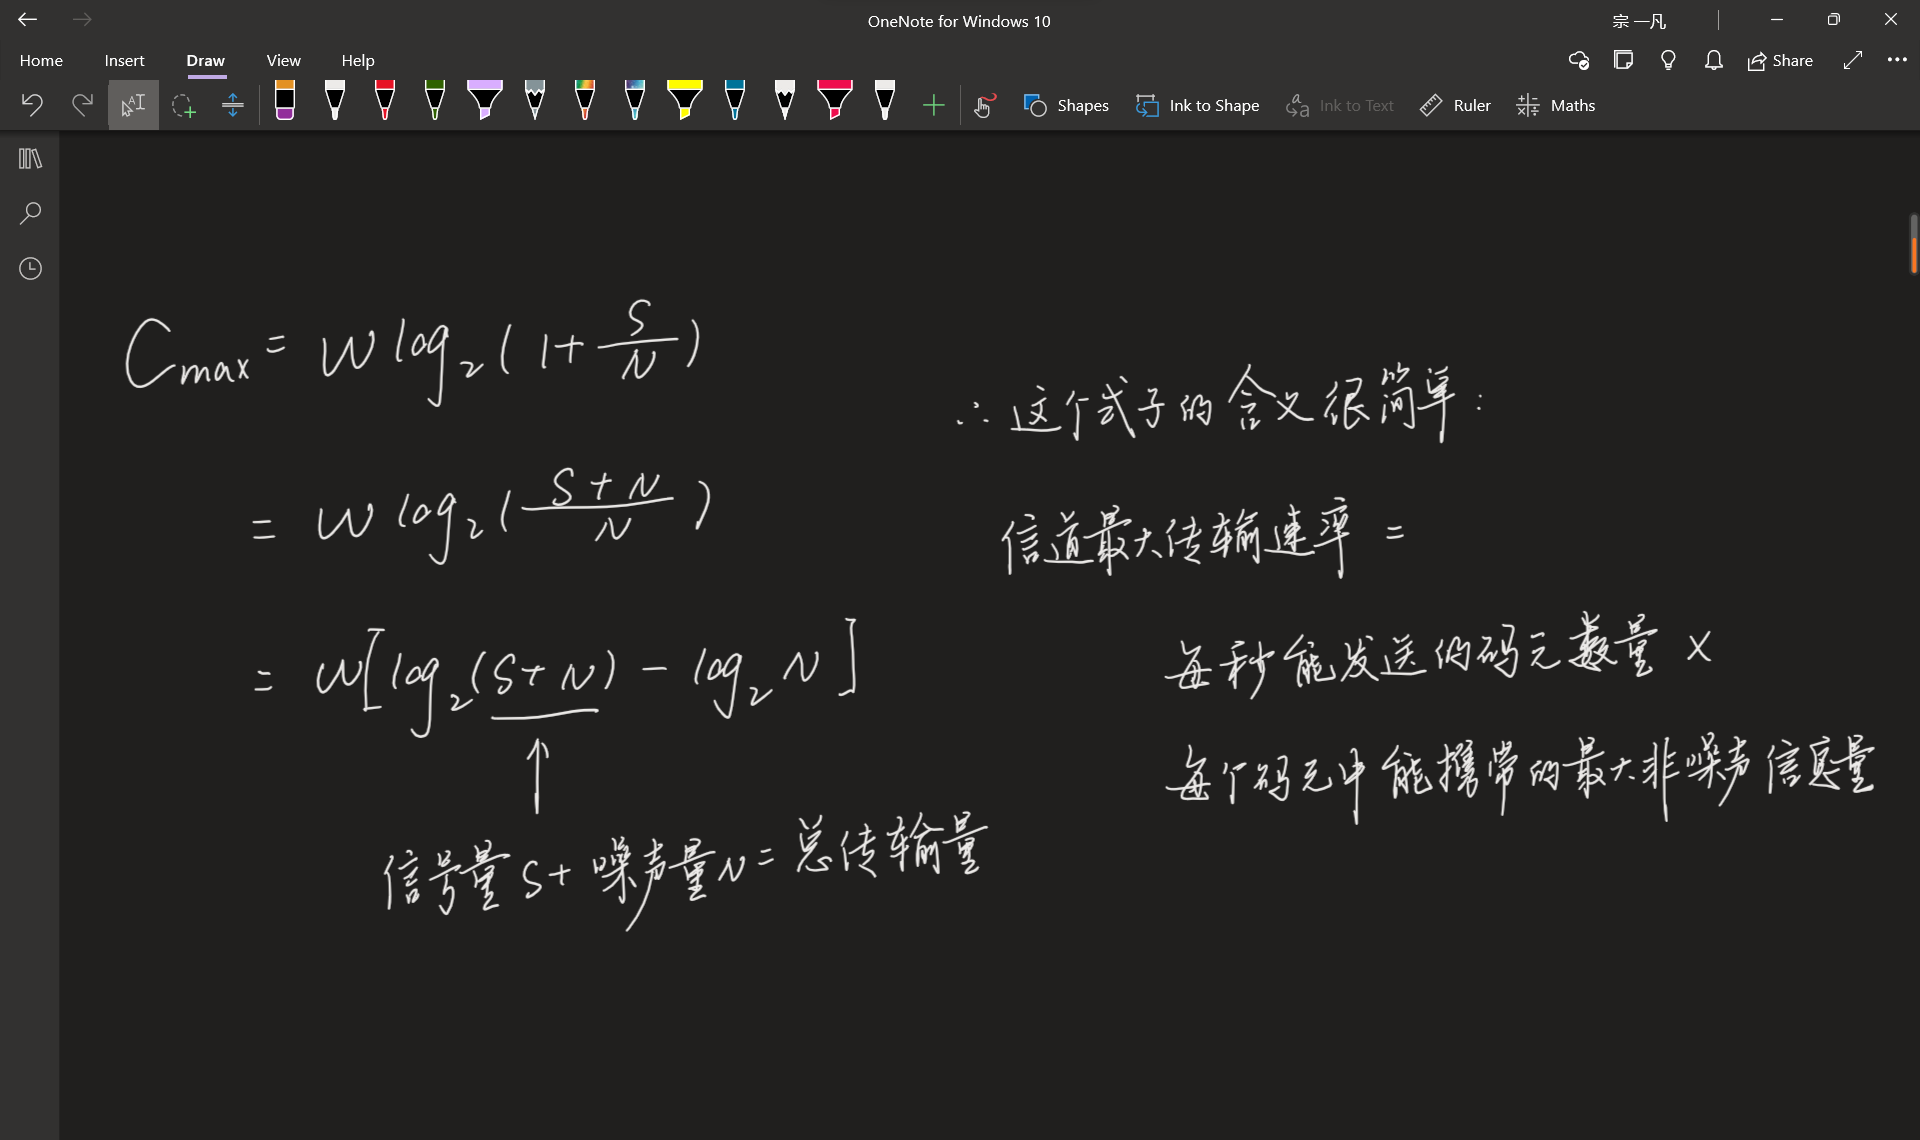 OneNote for Windows 10
宗 一凡
Home Insert Draw View Help
Share
Shapes Ink to Shape Ink to Text Ruler Maths
Cmax = W log₂(1+S/N)
= W log₂(S+N/N)
= W[log₂(S+N) - log₂N]
↑
信号量S+噪声量N=总传输量
∴这个式子的含义很简单:
信道最大传输速率 =
每秒能发送的码元数量 ×
每个码元中能携带的最大非噪声信息量